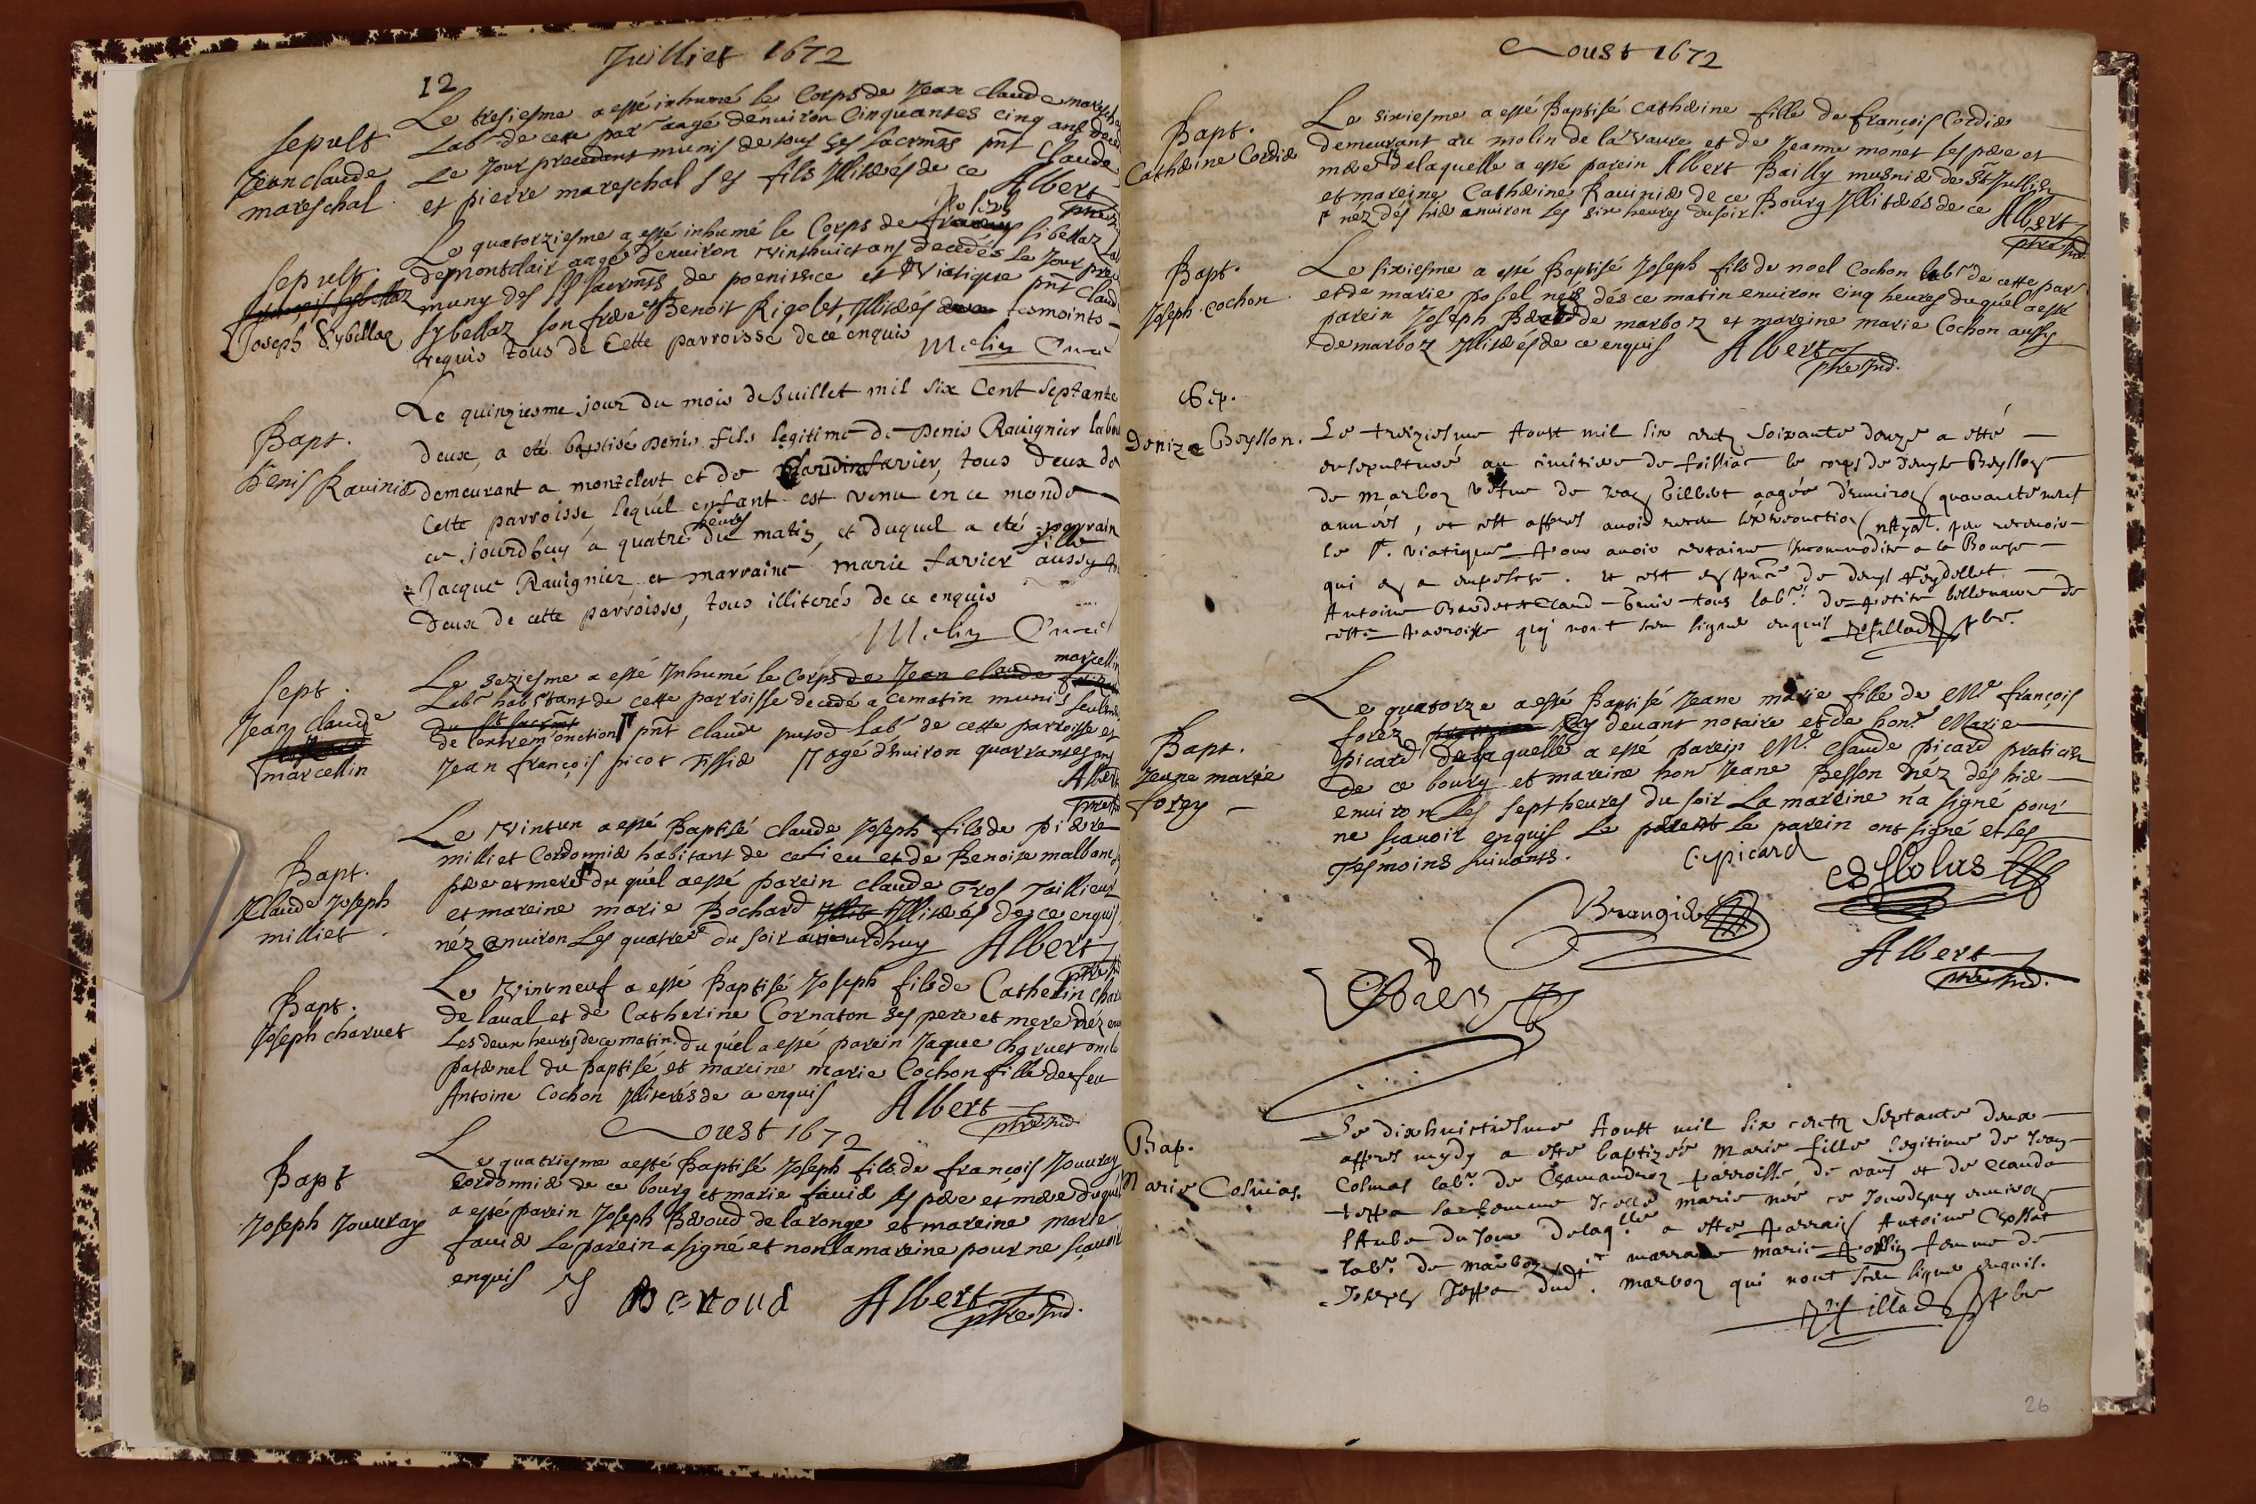 Juilliet 1672
12
Sepult
Jean claude
mareschal
Le tresiesme a esté inhumé le Corps de Jean Claude
Lab.r de cette par. aagé d'enuiron Cinquantes cinq ans
Le Jour precedent munis de tous ses sacrmts pnt Claude
et pierre mareschal ses fils Illiterés de ce
Albert
Sepult.
Joseph Sybellaz
Le quatorziesme a esté inhumé le Corps de Joseph Sibellaz
demontclair aagé d'enuiron vinthuict ans decedés Le Jour
muny des SS sacrmts de poenitence et Viatique pnt Claud
Sybellaz son frere et Benoit Rigolet, Illiterés tesmoints
requis tous de Cette parroisse de ce enquis
Melin Curé
Bapt.
Denis Rauinier
Le quinziesme jour du mois de Juillet mil six Cent septante
deux, a eté baptisé Denis fils legitime de Denis Rauignier
demeurant a montclert et de Claudina favier, tous deux de
Cette parroisse lequel enfant est venu en ce monde
ce jourdhuy a quatre heures du matin, et duquel a eté parrain
Jacque Rauignier et marraine marie favier fille aussy
Deux de cette parroisse, tous illiterés de ce enquis
Melin Curé
Sept.
Jean Claude
marcellin
Le seziesme a esté Inhumé le Corps de Jean claude marcellin
Lab.r habitant de cette parroisse decedé a ce matin munis
de l'extrem'onction pnt claude putod Lab.r de cette parroisse et
Jean françois picot Tissier aagé d'enuiron quarrantes ans
Albert
Bapt.
Claude Joseph
milliet
Le vintun a esté Baptisé claude Joseph fils de pierre
milliet Cordonnier habitant de ce Lieu et de Benoite
pere et mere du quel a esté parein claude Gros Taillieur
et mareine marie Bochard Illiterés de ce enquis
néz enuiron Les quatre du soir auiourdhuy
Albert
Bapt.
Joseph charuet
Le vintneuf a esté Baptisé Joseph fils de Catherin
de laual et de Catherine Cornaton ses pere et mere néz
Les deux heures de ce matin du quel a esté parein Jaque charuet
paternel du Baptisé et mareine marie Cochon fille de feu
Antoine Cochon Illiterés de ce enquis
Albert
Aoust 1672
Bapt
Joseph Jouuray
Le quatriesme a esté Baptisé Joseph fils de françois Jouuray
Cordonnier de ce bourg et marie fauier ses pere et mere duquel
a esté parein Joseph Beroud de la ronge et mareine marie
fauier Le parein a signé et non la mareine pour ne sçauoir
enquis
J Beroud
Albert
Aoust 1672
Bapt.
Catherine Cordier
Le sixiesme a esté Baptisé Catherine fille de françois Cordier
demeurant au molin de la Vaure et de Jeanne monet ses pere et
mere de laquelle a esté parein Albert Bailly musnier de
et mareine Catherine Rauinier de ce Bourg Illiterés de ce
néz dés hier enuiron Les six heures du soir
Albert
Bapt.
Joseph Cochon
Le sixiesme a esté Baptisé Joseph fils de noel Cochon lab.r de cette par.
et de marie posel néz dés ce matin enuiron cinq heures du quel a esté
parein Joseph de marboz et mareine marie Cochon aussy
de marboz Illiterés de ce enquis
Albert
Sep.
Denize Beyllon.
Le treiziesme Aoust mil six centz soixante douze a esté
ensepulturé au cimitiere de foilliac le corps de Denyse Beyllon
de Marboz vefue de Jean Gilbert aagée d'enuiron quarante neuf
années, et c'est appres auoir receu l'extreonction n'ayat. peu receuoir
le st. viatique Pour auoir certaine Incommodite a la Bouche
qui en a empesché. Et c'est en pnce de Denys Feydellet
Antoine Claud tous lab.rs de petite de
cette Parroisse qui n'ont sceu signer enquis
Bapt.
Jeane marie
forey
Le quatorze a esté Baptisé Jeane marie fille de Me françois
forez cy deuant notaire et de hon. Marie
picard de laquelle a esté parein Me. Claude picard praticien
de ce bourg et mareine hon. Jeane Besson néz dés hier
enuiron Les sept heures du soir La mareine n'a signé pour
ne sçauoir enquis Le pere et le parein ont signé et les
Tesmoins suiuants.
C. picard
Albert
Bap.
Marie Colmas.
Le dixhuictiesme Aoust mil six centz septante deux
appres mydy a este baptizée Marie fille legitime de Jean
Colmas lab.r de Parroisse de et de Claude
sa femme Icelle marie née ce Jourdhuy enuiron
l'Aube du Jour delaq.lle a este Parrain Antoine
lab.r de Marboz et marraine Marie femme de
Joseph dud.t Marboz qui n'ont sceu signer enquis.
26